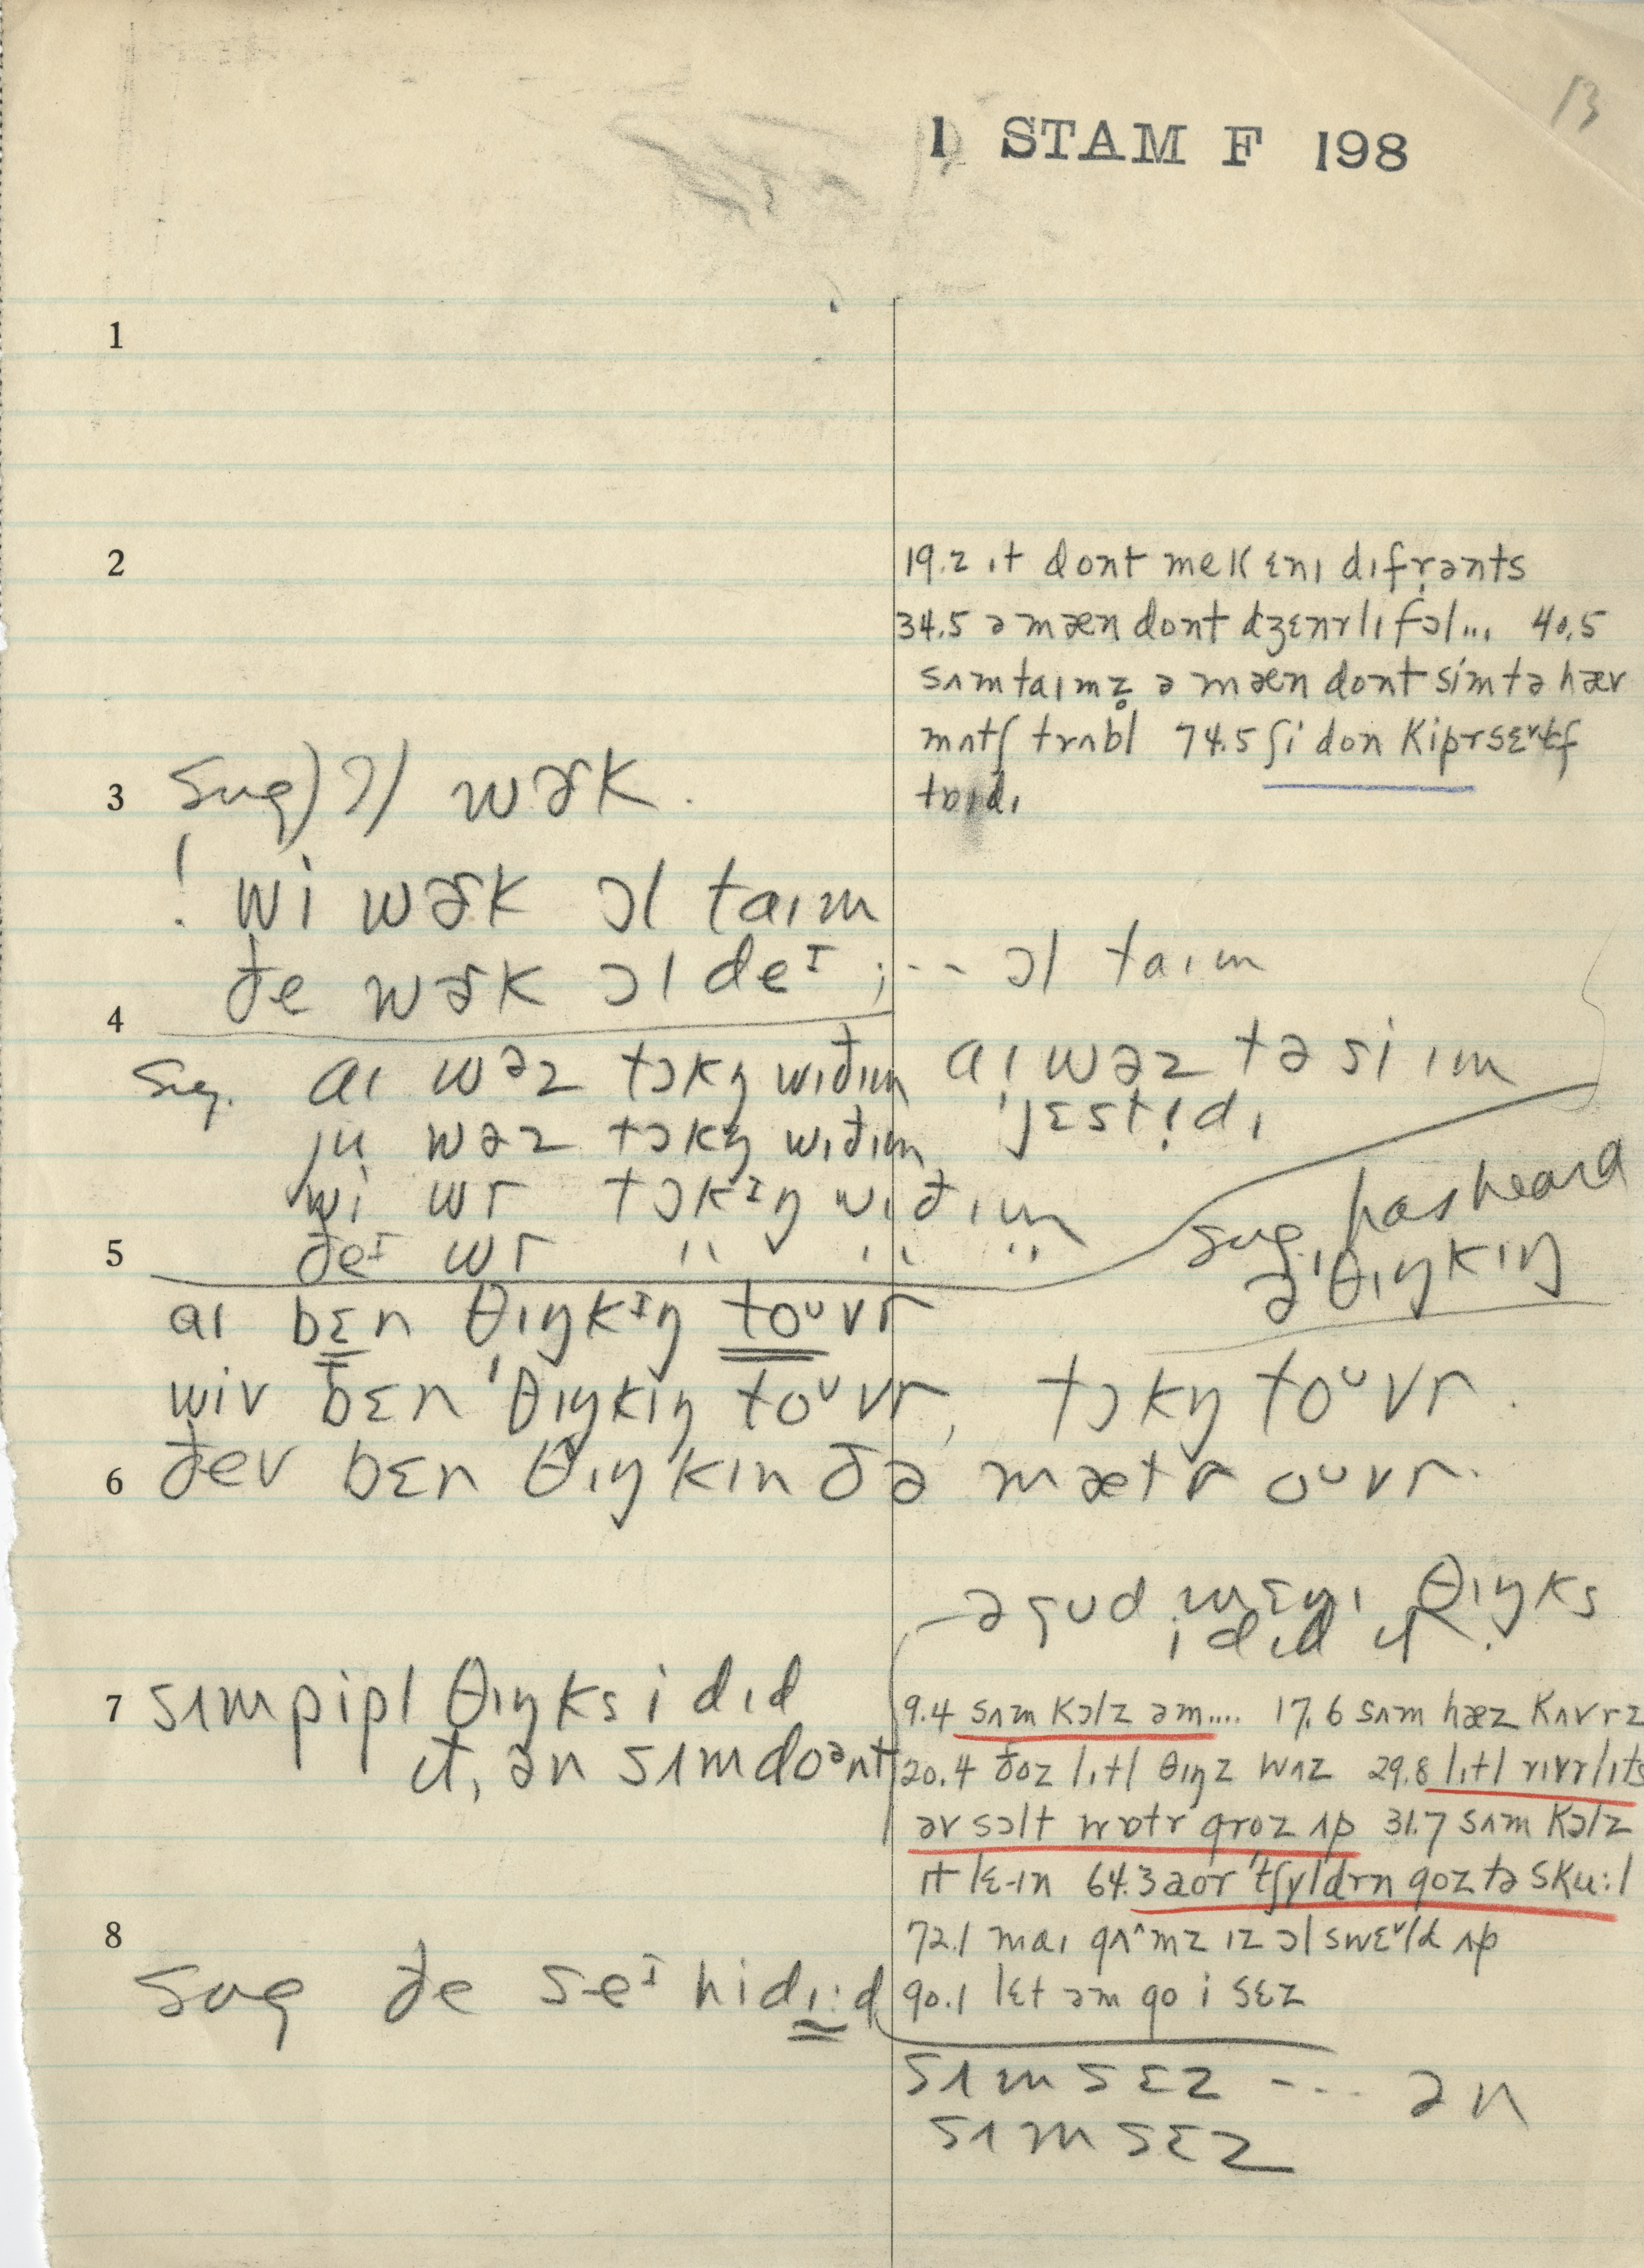 13
1 STAM F 198
1
2
19.2 ɪt dont mek ɛnɪ dɪfrənts
34.5 ə mæn dont dʒɛnrlɪ fɔl... 40.5
sʌmtaɪmz̥ ə mæn dont sim tə hæv
mʌtʃ trʌbl 74.5 ʃi don kip
3 sug) ɔl wɚk.
! wi wɚk ɔl taɪm
ðe wɚk ɔl deᴵ ; --- ɔl taɪm
4
sug. aɪ wəz tɔkŋ wɪðɪm aɪ wəz tə si ɪm
ju wəz tɔkŋ wɪðɪm ˈjɛstɪdɪ
wi wr tɔkɪŋ wɪðɪm
5 ðeᴵ wr " " "
sug. has heard
əˈθɪŋkɪŋ
aɪ bɛn θɪŋkɪŋ toᵘvr
wiv bɛn ˈθɪŋkɪŋ toᵘvr, tɔkŋ toᵘvr.
6 ðev bɛn θɪŋkɪn ðə mætr oᵘvr.
ə gud mɛnɪ θɪŋks
i dɪd ɪt.
7 sʌm pipl θɪŋks i dɪd
ɪt, ən sʌm doᵊnt
9.4 sʌm kɔlz əm.... 17.6 sʌm hæz kʌvrz
20.4 ðoz lɪtl θɪŋz wʌz 29.8 lɪtl rɪvrlɪts
əv sɔlt wɒtr groz ʌp 31.7 sʌm kɔlz
ɪt lɛ-ɪn 64.3 aor ˈtʃyldrn goz tə sku:l
72.1 maɪ gʌ^mz ɪz ɔl swɛld ʌp
8
sug ðe seᴵ hi dɪ:d
90.1 lɛt əm go i sɛz
sʌm sɛz --- ən
sʌm sɛz